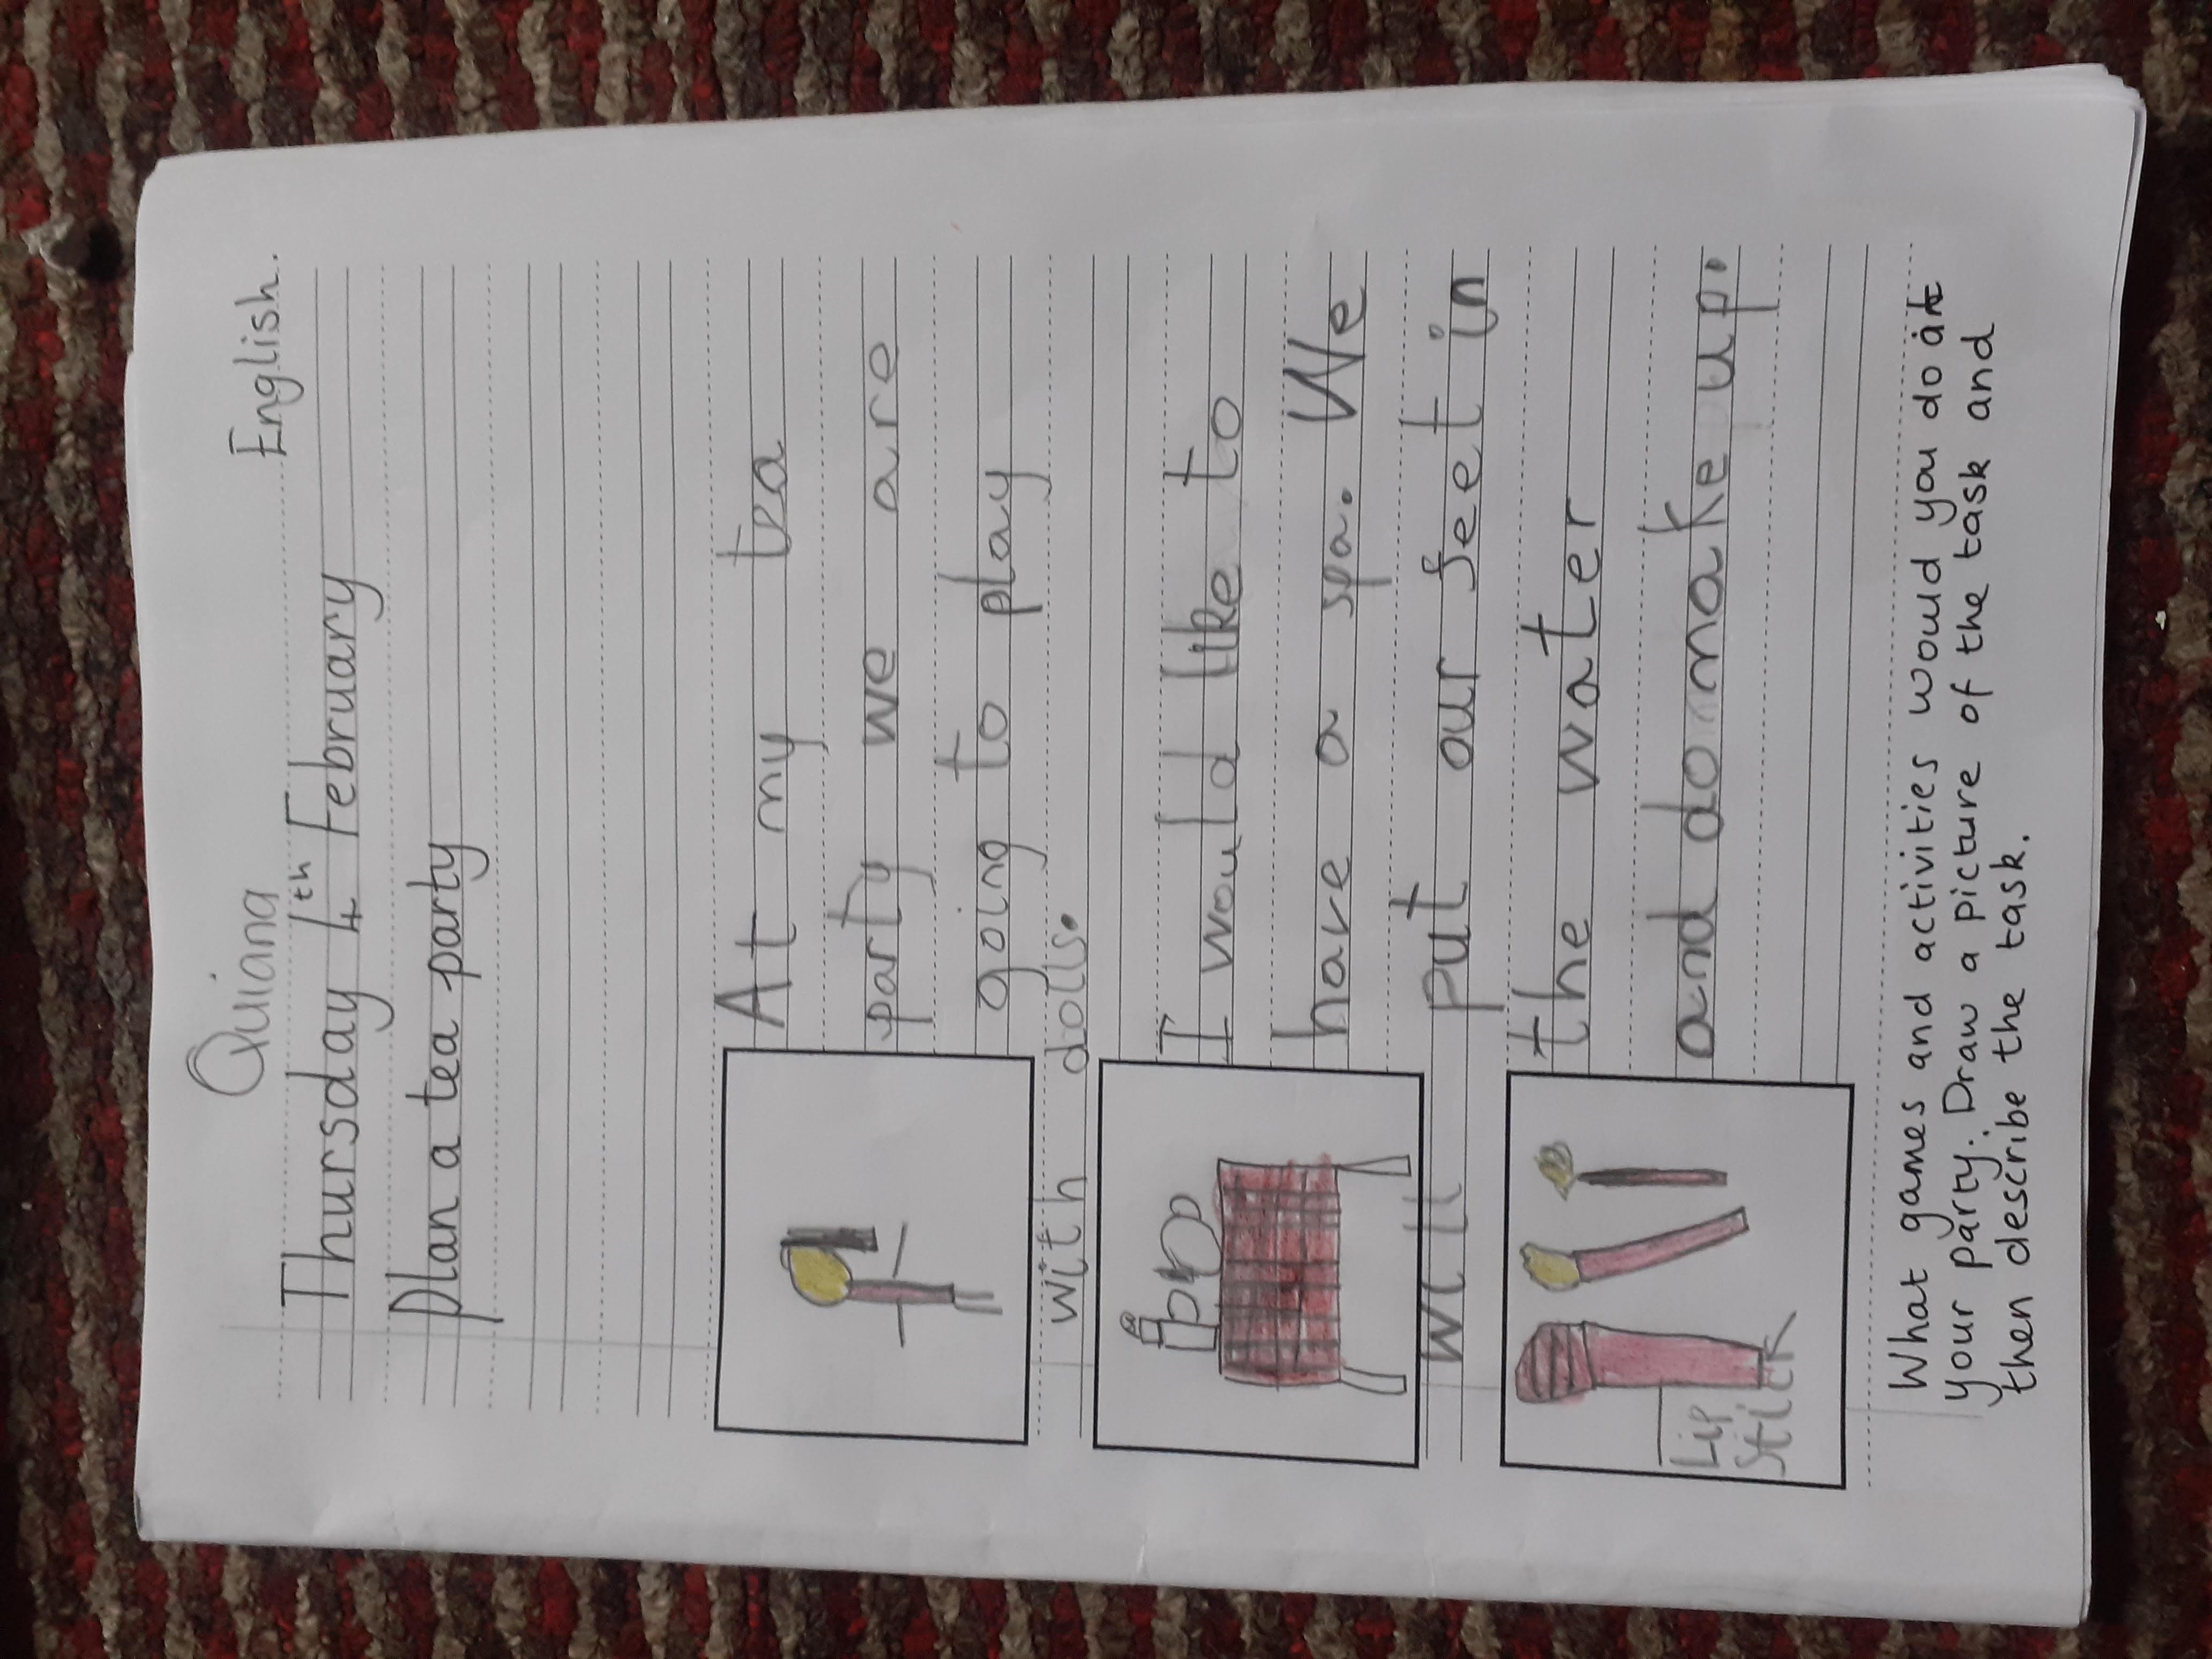 Quiana English.
Thursday 4th February
Plan a tea party
At my tea
party we are
going to play
with dolls.
I would like to
have a spa. We
will put our feet in
the water
and do make up.
Lip
stick
What games and activities would you do at
your party. Draw a picture of the task and
then describe the task.